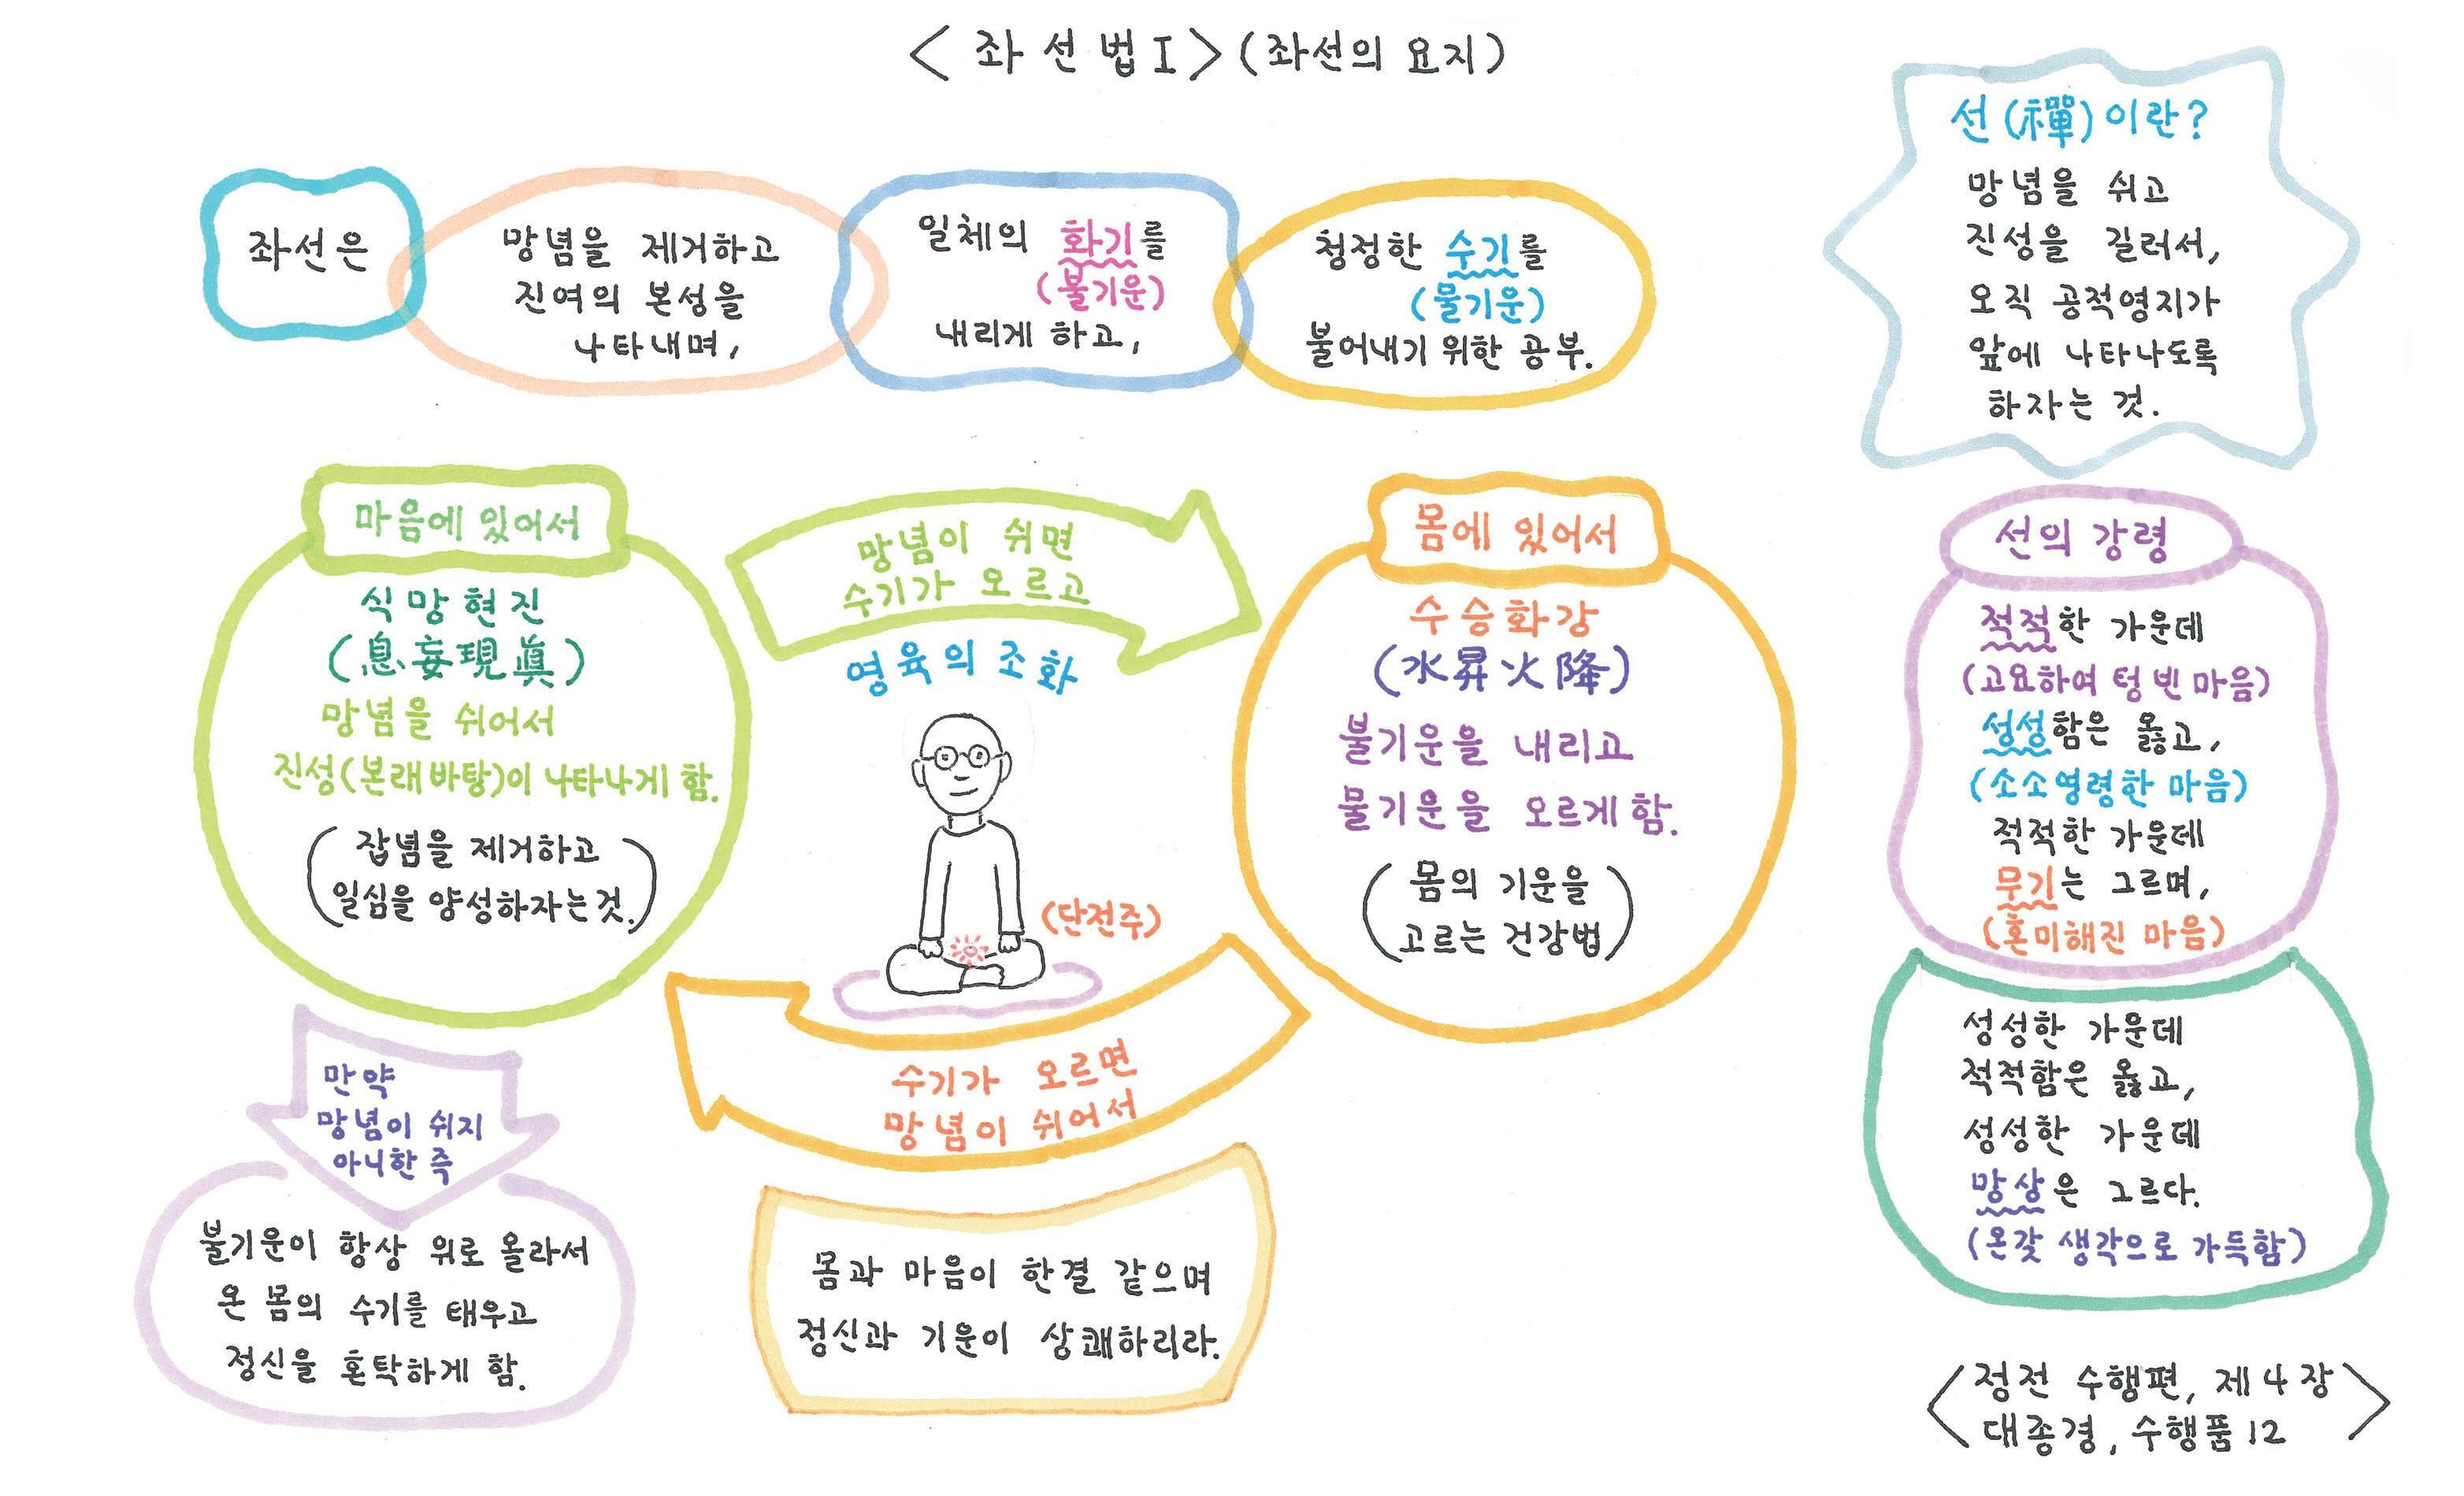 <좌선법Ⅰ>(좌선의 요지)
좌선은
망념을 제거하고
진여의 본성을
나타내며,
일체의 화기를
(불기운)
내리게 하고,
청정한 수기를
(물기운)
불어내기 위한 공부.
선(禪)이란?
망념을 쉬고
진성을 길러서,
오직 공적영지가
앞에 나타나도록
하자는 것.
마음에 있어서
식망현진
(息妄現眞)
망념을 쉬어서
진성(본래바탕)이 나타나게 함.
(잡념을 제거하고
일심을 양성하자는것.)
망념이 쉬면
수기가 오르고
영육의 조화
(단전주)
몸에 있어서
수승화강
(水昇火降)
불기운을 내리고
물기운을 오르게 함.
(몸의 기운을
고르는 건강법)
수기가 오르면
망념이 쉬어서
만약
망념이 쉬지
아니한 즉
불기운이 항상 위로 올라서
온 몸의 수기를 태우고
정신을 혼탁하게 함.
몸과 마음이 한결 같으며
정신과 기운이 상쾌하리라.
선의 강령
적적한 가운데
(고요하여 텅 빈 마음)
성성함은 옳고,
(소소영령한 마음)
적적한 가운데
무기는 그르며,
(혼미해진 마음)
성성한 가운데
적적함은 옳고,
성성한 가운데
망상은 그르다.
(온갖 생각으로 가득함)
<정전 수행편, 제4장
대종경, 수행품12>